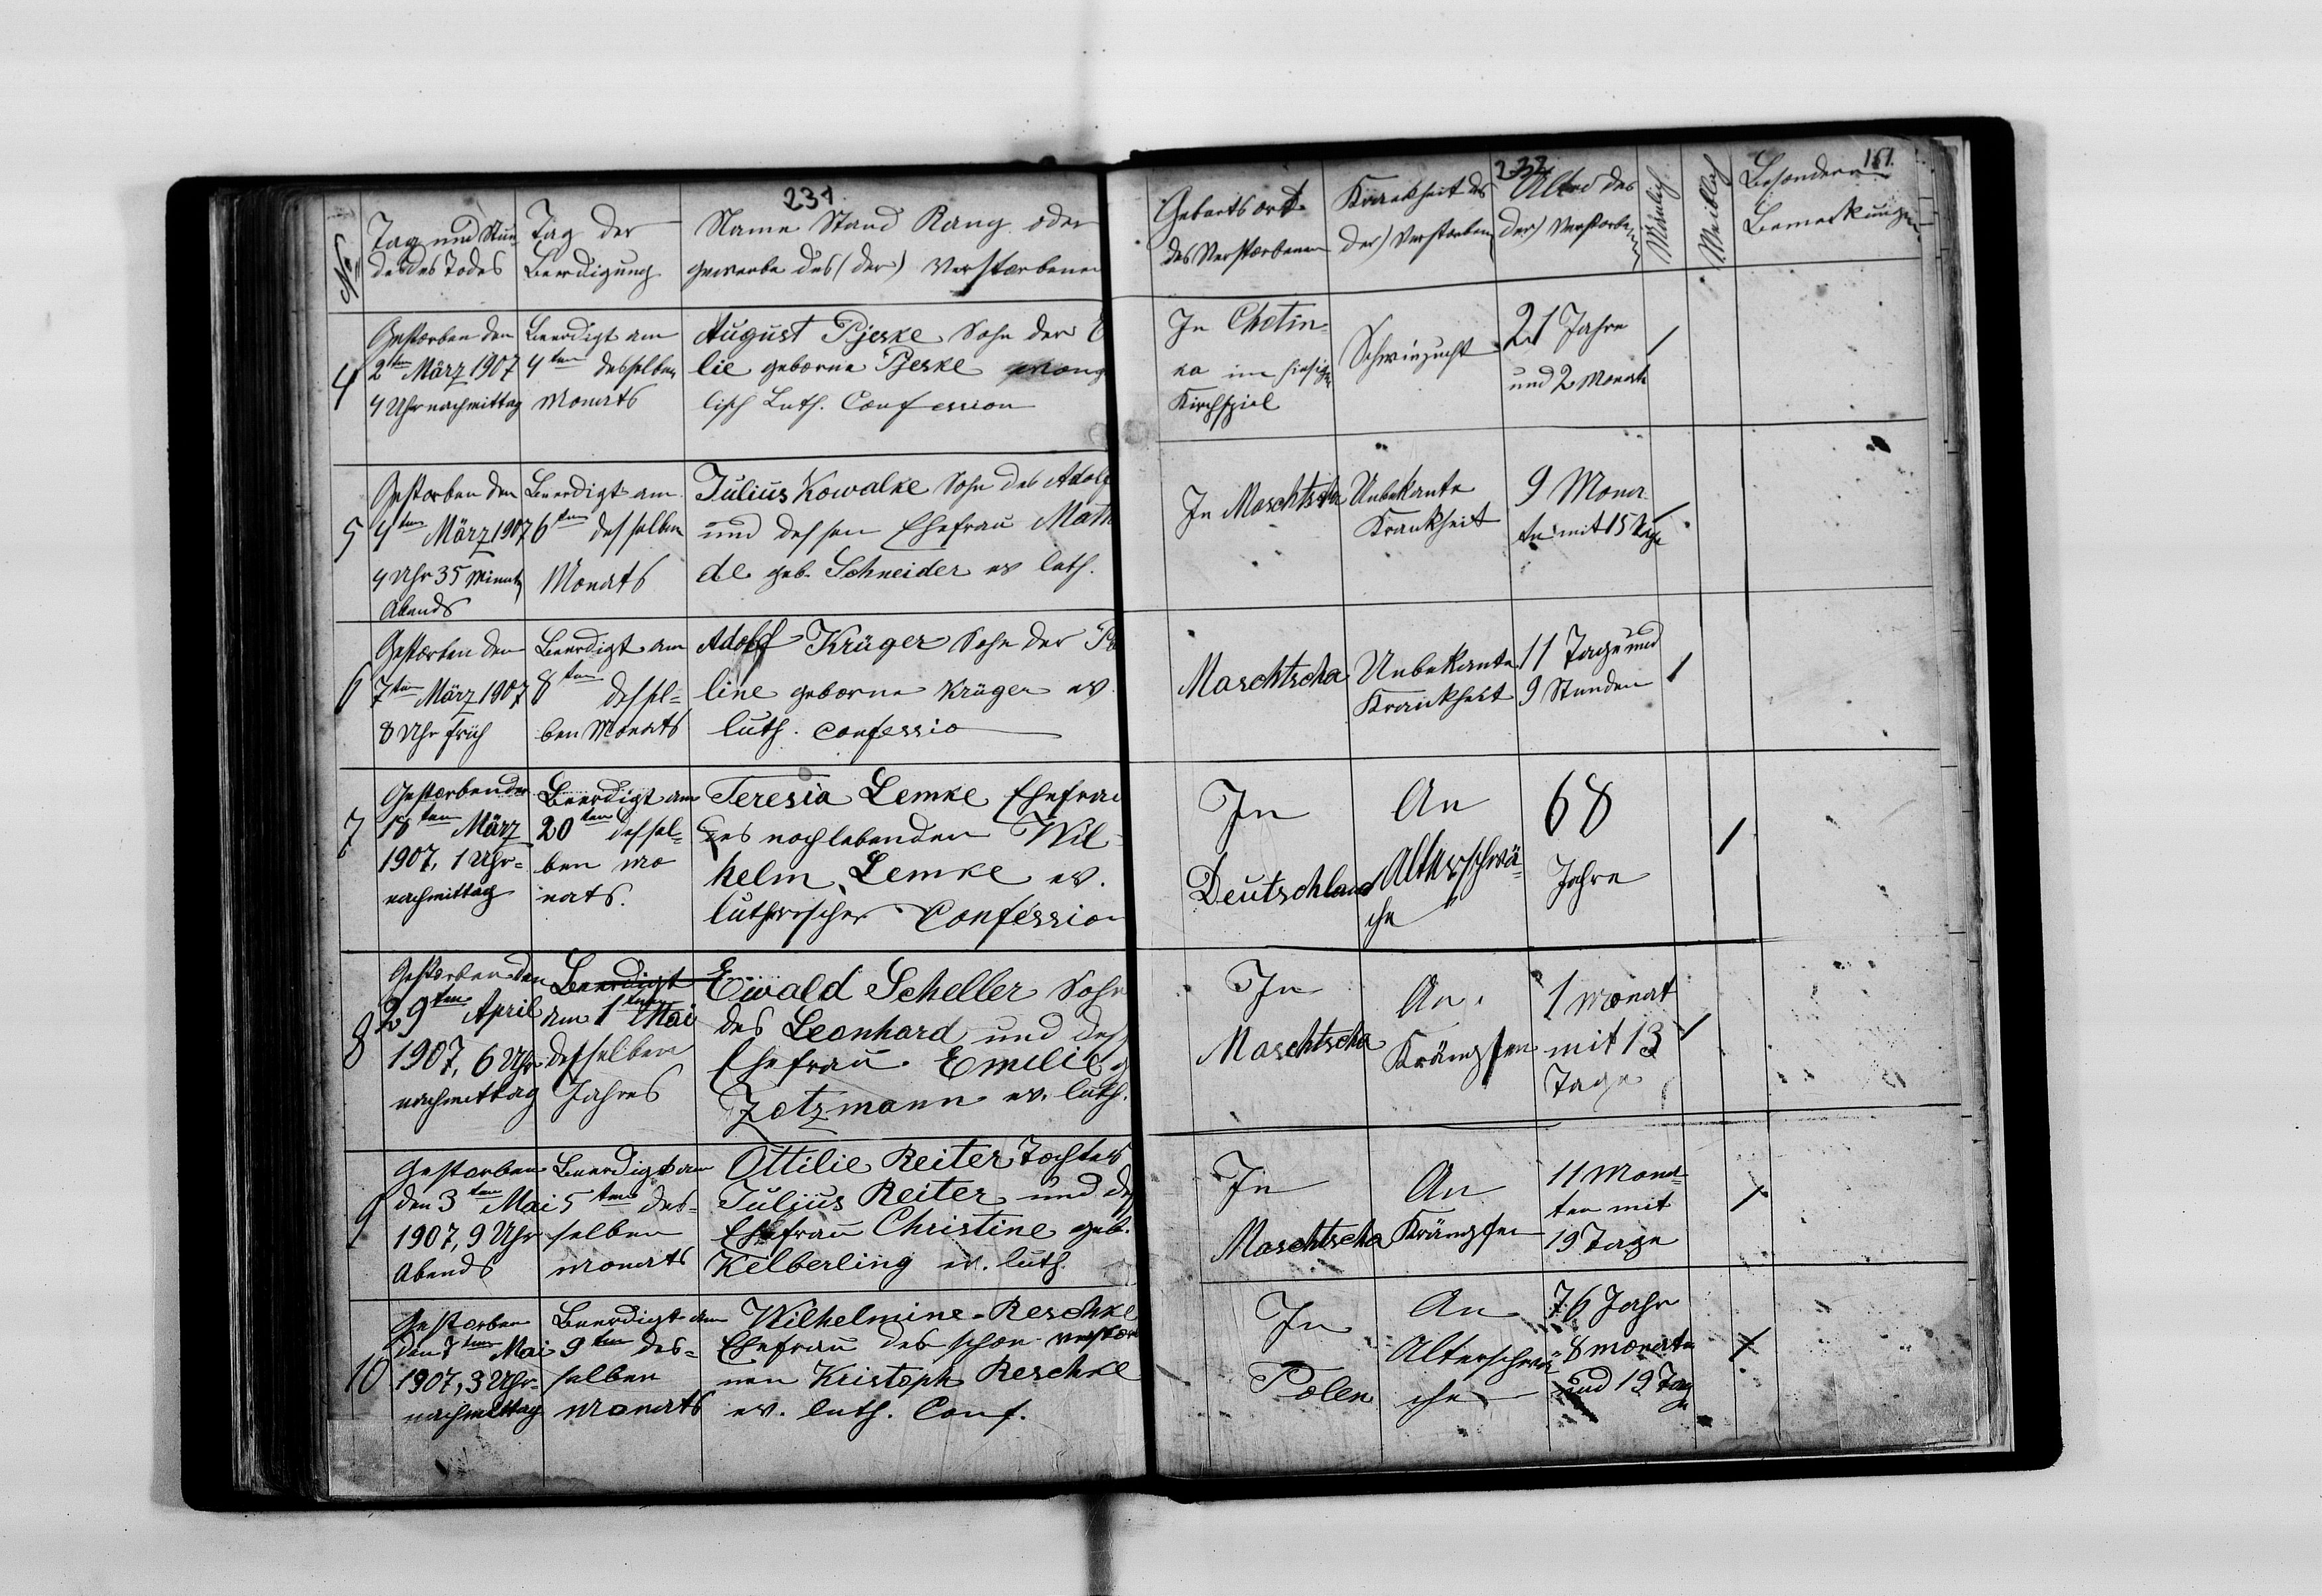 231.
No
Tag und Stun
de des Todes
Tag der
Beerdigung
Name Stand Rang oder
gewerbe des (der) Verstorbenen
232
151.
Geburtsort
des Verstorbenen
Krankheit des
der) Verstorben
Alter des
der) Verstorbe
Mänlich
Weiblich
Besondere
Bemerkungen
4
Gestorben den
2ten März 1907
4 Uhr nachmittag
Beerdigt am
4ten desselben
Monats
August Pjeske Sohn der E
lie geborene Pjeske evang
lisch Luth. Confession
In Chotin-
ka im hiesigen
Kirchspiel
Schwinzucht
21 Jahre
und 2 Monate
/
5
Gestorben den
4ten März 1907
4 Uhr 35 Minute
Abends
Beerdigt am
6ten desselben
Monats
Julius Kowalke Sohn des Adolf
und dessen Ehefrau Math
de geb. Schneider ev luth.
In Maschtscha
Unbekante
Krankheit
9 Mona-
te mit 15 Tage
/
6
Gestorben den
7ten März 1907
8 Uhr früh
Beerdigt am
8ten dessel-
ben Monats
Adolf Krüger Sohn der Pa
line geborene Krüger ev.
luth. Confessio
Maschtscha
Unbekante
Krankheit
11 Tage und
9 Stunden
/
7
Gestorben den
18ten März
1907, 1 Uhr-
nachmittag
Beerdigt am
20ten dessel-
ben Mo
nats.
Teresia Lemke Ehefrau
des noch lebenden Wil-
helm Lemke ev.
lutherischer Confession
In
Deutschland
An
Alterschwä-
che
68
Jahre
/
8
Gestorben den
29ten April
1907, 6 Uhr
nachmittag
Beerdigt
am 1ten Mai
desselben
Jahres
Ewald Scheller Sohn
des Leonhard und dess
Ehefrau Emilie g
Zotzmann ev. luth.
In
Maschtscha
An
Krämpfen
1 Monat
mit 13
Tage
/
9
Gestorben
den 3ten Mai
1907, 9 Uhr
Abends
Beerdigt am
5ten des-
selben
Monats
Ottilie Reiter Tochter
Julius Reiter und des
Ehefrau Christine geb.
Kelberling ev. luth.
In
Maschtscha
An
Krämpfen
11 Mona-
ten mit
19 Tage
/
10
Gestorben
den 7ten Mai
1907, 3 Uhr-
nachmittag
Beerdigt am
9ten des-
selben
Monats
Wilhelmine Reschke
Ehefrau des schon verstor
nen Kristoph Reschke
ev. luth. Conf.
In
Polen
An
Alterschwä
che
76 Jahr
8 Monate
und 19 Tag
/